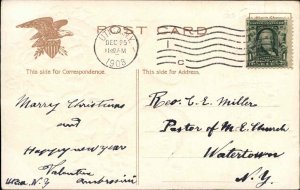 POST CARD
UTICA, N.Y.
DEC 25
1908
1
C
This side for Correspondence.
This side for Address.
Marry Christmas
and
Happy new year
Valentine
Utica, N.Y. Ambrosini
Rev. C. E. Miller
Pastor of M. E. Church
Watertown
N.Y.